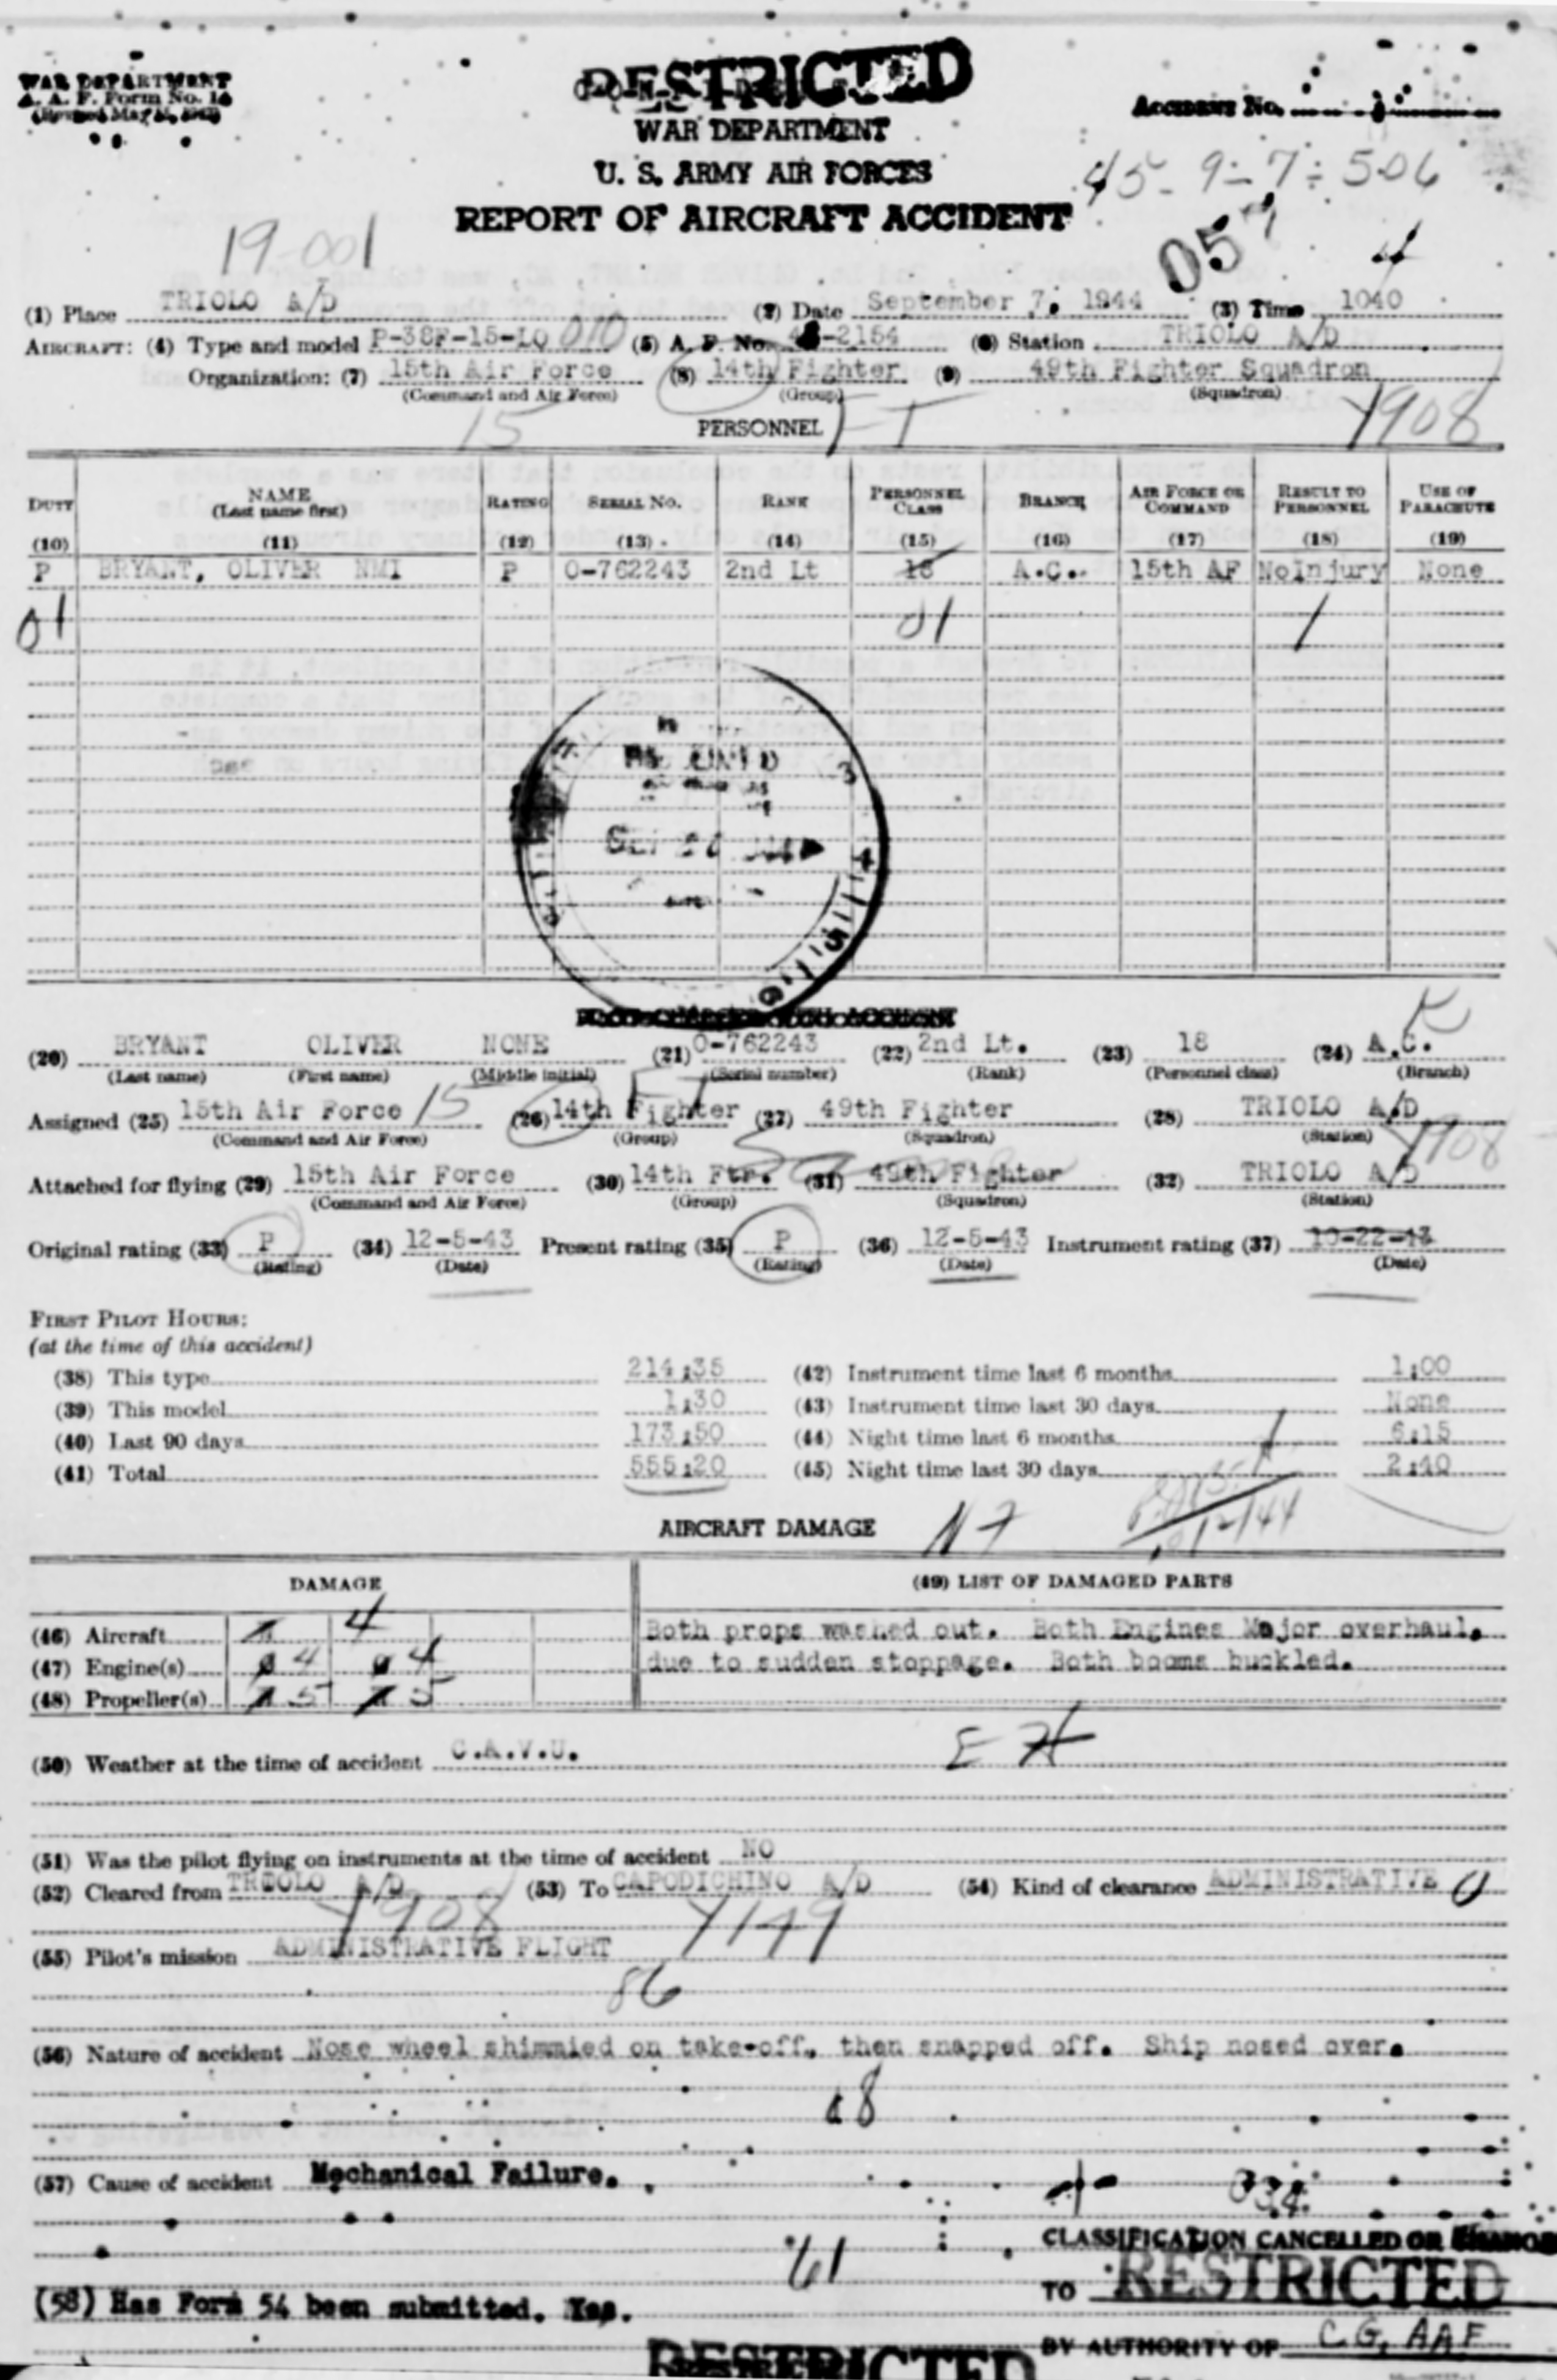 WAR DEPARTMENT
A. A. F. Form No. 14
RESTRICTED
WAR DEPARTMENT
U. S. ARMY AIR FORCES
REPORT OF AIRCRAFT ACCIDENT
Accident No.
45-9-7-506
19-001
(1) Place TRIOLO A/D (2) Date September 7, 1944 (3) Time 1040
Aircraft: (4) Type and model P-38F-15-LO 010 (5) A. F. No. -2154 (6) Station TRIOLO A/D
Organization: (7) 15th Air Force (8) 14th Fighter (9) 49th Fighter Squadron
(Command and Air Force) (Group) (Squadron)
15 PERSONNEL FT Y908
Duty NAME (Last name first) Rating Serial No. Rank Personnel Class Branch Air Force or Command Result to Personnel Use of Parachute
(10) (11) (12) (13) (14) (15) (16) (17) (18) (19)
P BRYANT, OLIVER NMI P O-762243 2nd Lt 18 A.C. 15th AF NoInjury None
01 01 1
(20) BRYANT OLIVER NONE (21) O-762243 (22) 2nd Lt. (23) 18 (24) A.C.
(Last name) (First name) (Middle initial) (Serial number) (Rank) (Personnel class) (Branch)
Assigned (25) 15th Air Force 15 (26) 14th Fighter (27) 49th Fighter (28) TRIOLO A/D
(Command and Air Force) (Group) (Squadron) (Station)
Y908
Attached for flying (29) 15th Air Force (30) 14th Ftr. (31) 49th Fighter (32) TRIOLO A/D
(Command and Air Force) (Group) (Squadron) (Station)
Original rating (33) P (34) 12-5-43 Present rating (35) P (36) 12-5-43 Instrument rating (37) 10-22-43
(Rating) (Date) (Rating) (Date) (Date)
First Pilot Hours:
(at the time of this accident)
(38) This type 214:35 (42) Instrument time last 6 months 1:00
(39) This model 1:30 (43) Instrument time last 30 days None
(40) Last 90 days 173:50 (44) Night time last 6 months 6:15
(41) Total 555:20 (45) Night time last 30 days 2:40
AIRCRAFT DAMAGE
DAMAGE (49) LIST OF DAMAGED PARTS
(46) Aircraft 4 Both props washed out. Both Engines Major overhaul,
(47) Engine(s) 4 4 due to sudden stoppage. Both booms buckled.
(48) Propeller(s) 5 5
(50) Weather at the time of accident C.A.V.U.
(51) Was the pilot flying on instruments at the time of accident NO
(52) Cleared from TRIOLO A/D (53) To CAPODICHINO A/D (54) Kind of clearance ADMINISTRATIVE
Y908 Y149
(55) Pilot's mission ADMINISTRATIVE FLIGHT
86
(56) Nature of accident Nose wheel shimmied on take-off, then snapped off. Ship nosed over.
(57) Cause of accident Mechanical Failure.
61
CLASSIFICATION CANCELLED OR
TO RESTRICTED
(58) Has Form 54 been submitted. Yes.
BY AUTHORITY OF C.G, AAF
RESTRICTED